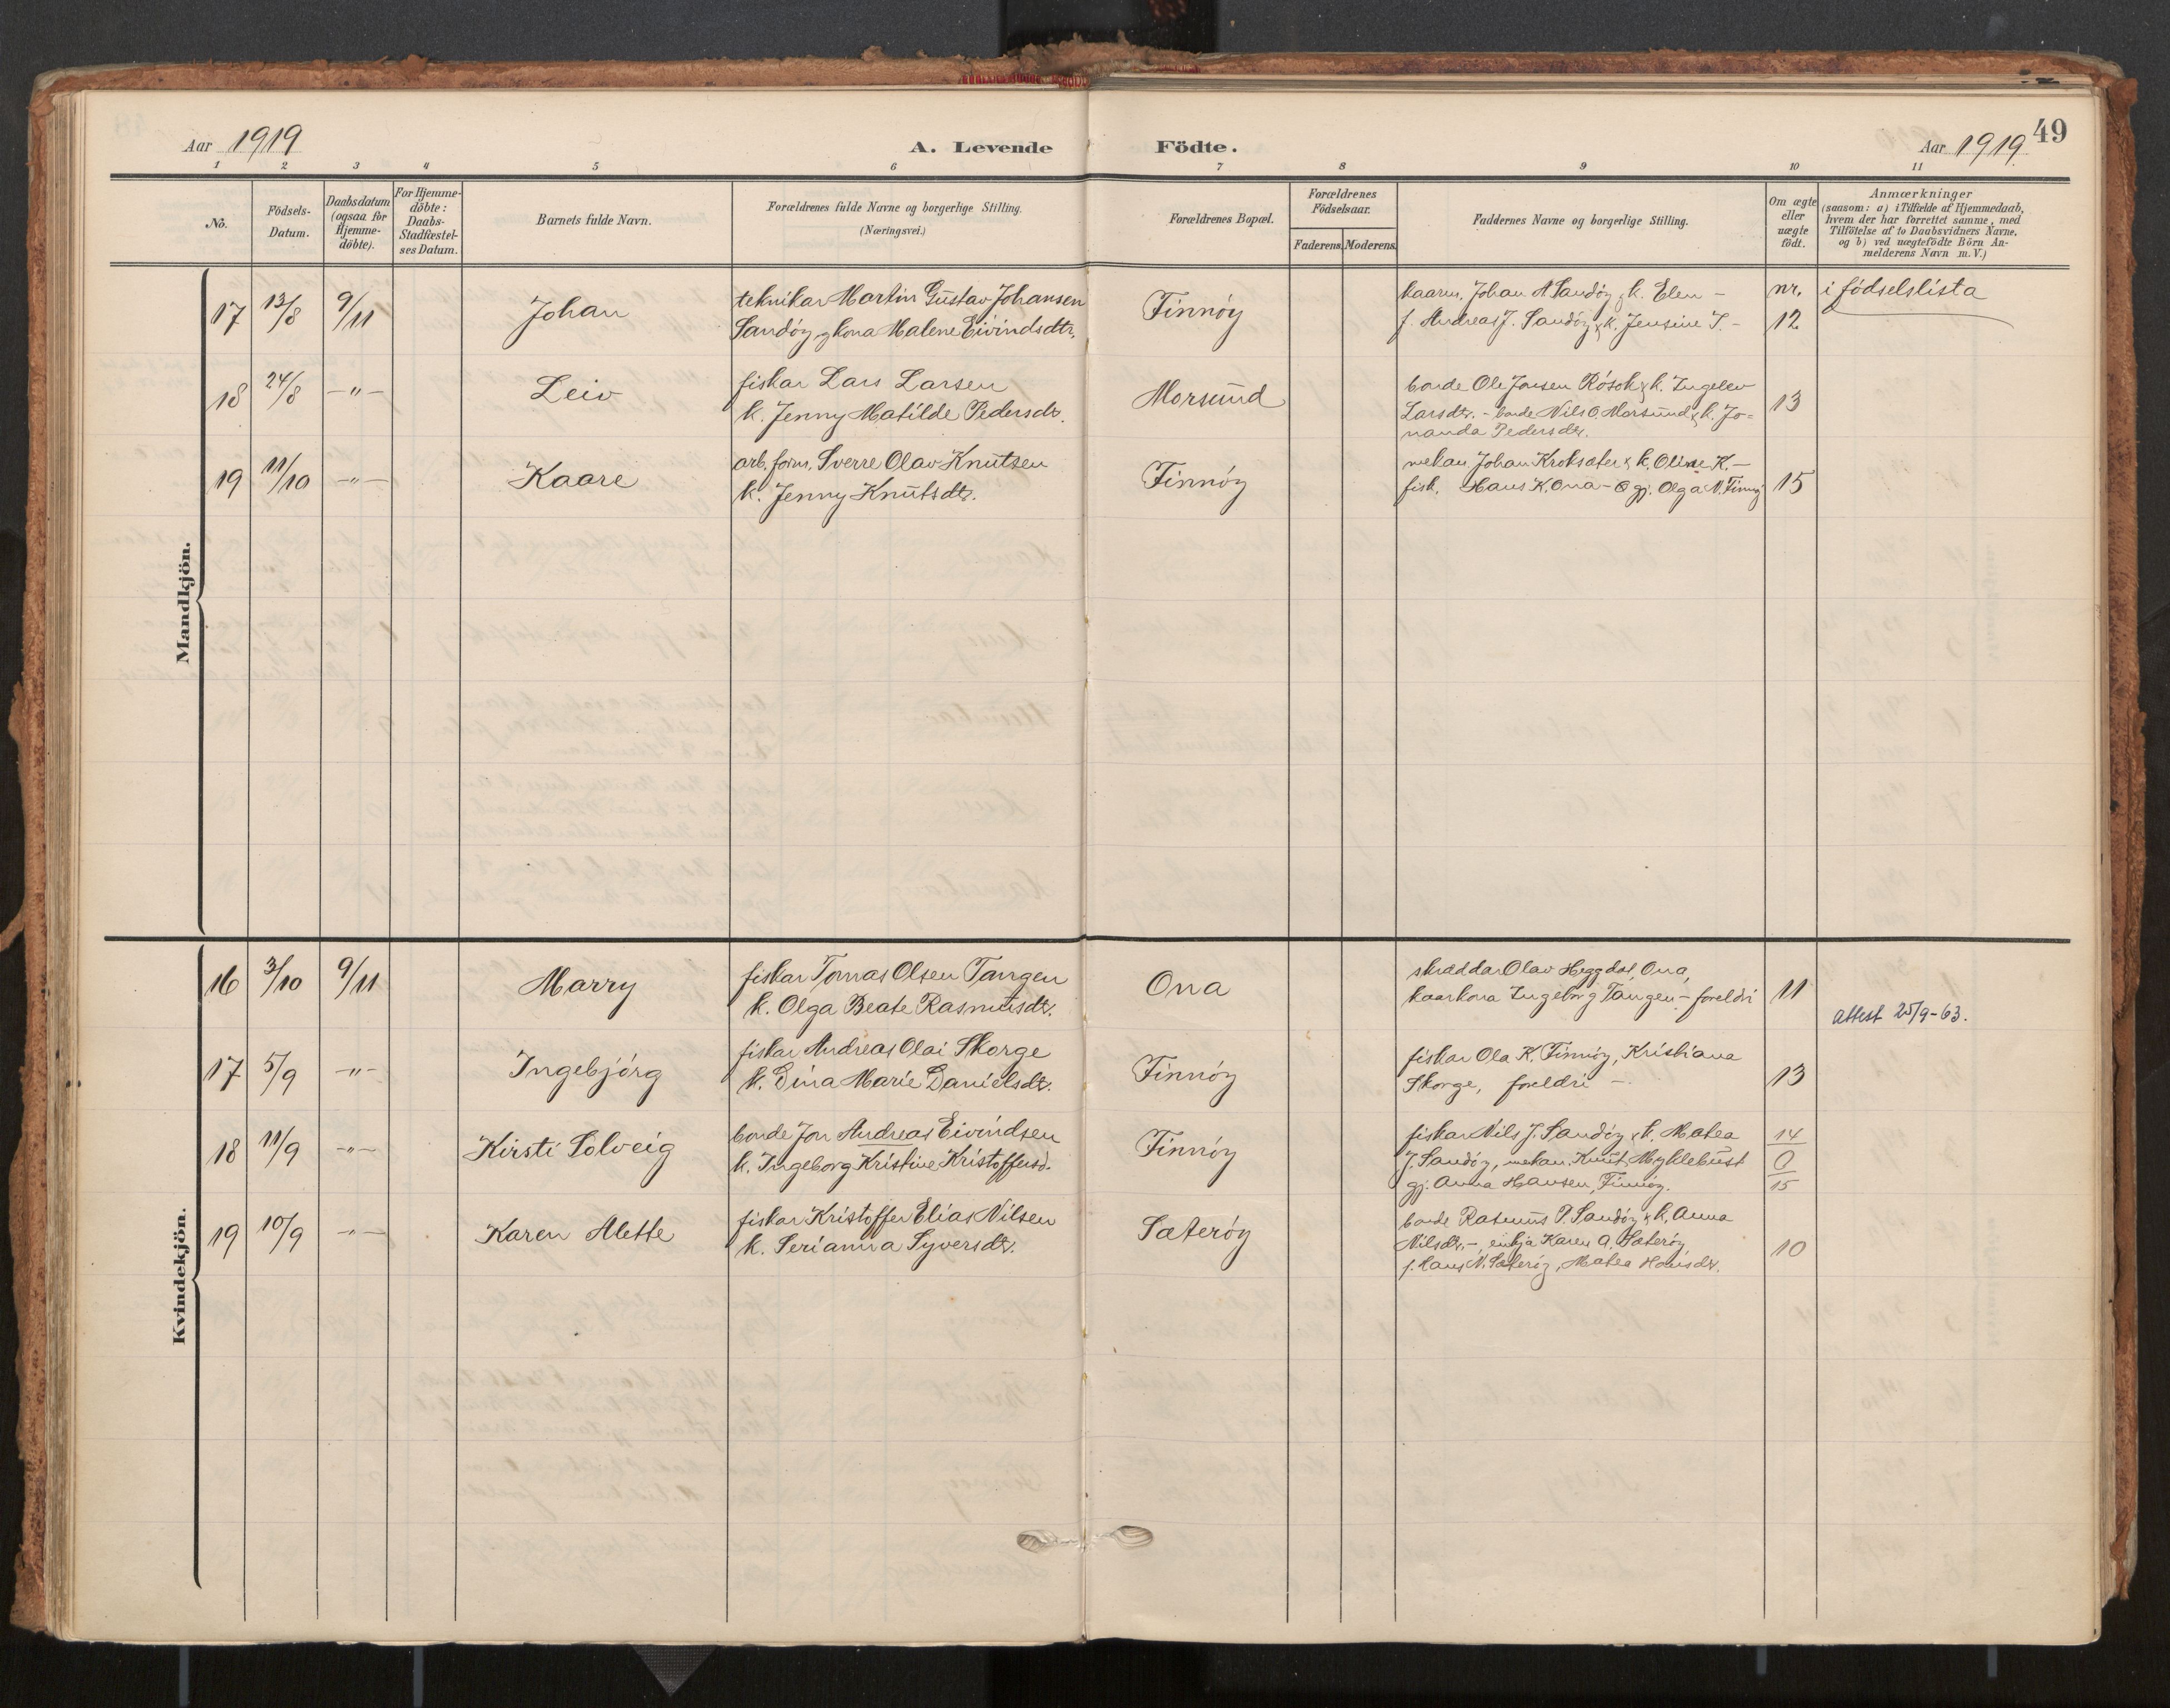 49
Aar 1919
A. Levende
Födte.
Aar 1919
1 2 3 4 5 6 7 8 9 10 11
No.
Födsels-
Datum.
Daabsdatum
(ogsaa for
Hjemme-
döbte).
For Hjemme-
döbte:
Daabs-
Stadfæstel-
ses Datum.
Barnets fulde Navn.
Forældrenes fulde Navne og borgerlige Stilling.
(Næringsvei.)
Forældrenes Bopæl.
Forældrenes
Födselsaar.
Faderens. Moderens.
Faddernes Navne og borgerlige Stilling.
Om ægte
eller
uægte
födt.
Anmærkninger
(saasom: a) i Tilfælde af Hjemmedaab,
hvem der har forrettet samme, med
Tilföielse af to Daabsvidners Navne,
og b) ved uægtefödte Börn An-
melderens Navn m. V.)
Mandkjön.
17 13/8 9/11 Johan
teknikar Martin Gustav Johansen
Sandöy, kona Malene Eivindsdtr.
Finnöy
kaarm. Johan A Sandöy & k. Elen -
f. Andreas J. Sandöy & k. Jensine T. -
nr.
12
i födselslista
18 24/8 -"- Leiv
fiskar Lars Larsen
k. Jenny Matilde Pedersdr.
Morsund
bonde Ole Jonsen Rösok & k. Ingelev
Larsdtr. - bonde Nils O. Morsund & k. Jo-
nanda Pedersdr.
13
19 11/10 -"- Kaare
arb. form. Sverre Olav Knutsen
k. Jenny Knutsdtr.
Finnöy
mekan. Johan Kroksæter & k. Oline K. -
fisk. Hans K. Ona - gj. Olga N. Finnöy
15
Kvindekjön.
16 3/10 9/11 Marry
fiskar Tomas Olsen Tangen
k. Olga Beate Rasmusdtr.
Ona
skræddar Olav Heggdal, Ona,
kaarkona Ingeborg Tangen - foreldri
11
attest 25/9-63.
17 5/9 -"- Ingebjörg
fiskar Andreas Olai Skorge
k. Dina Marie Danielsdtr.
Finnöy
fiskar Ola K. Finnöy, Kristiana
Skorge, foreldri -
13
18 11/9 -"- Kirsti Solveig
bonde Jon Andreas Eivindsen
k. Ingeborg Kristine Kristoffersd.
Finnöy
fiskar Nils J. Sandöy & k. Matea
J. Sandöy, mekan. Knut Myklebust
gj. Anna Hansen, Finnöy.
14
0
15
19 10/9 -"- Karen Alette
fiskar Kristoffer Elias Nilsen
k. Serianna Syversdtr.
Sæteröy
bonde Rasmus P. Sandöy & k. Anna
Nilsdtr. - enkja Karen A. Sæteröy
f. Hans N. Sæteröy, Matea Hansdtr.
10